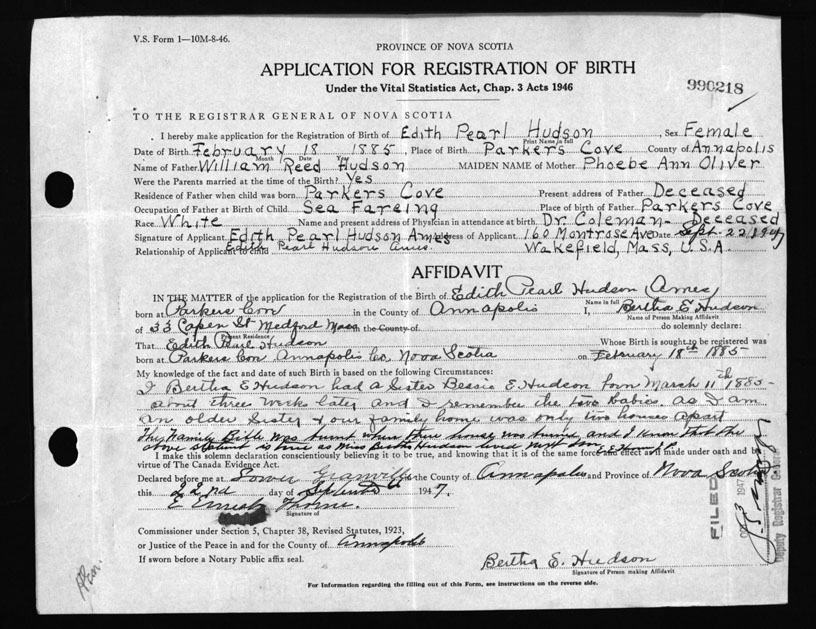 V.S. Form 1—10M-8-46.
PROVINCE OF NOVA SCOTIA
APPLICATION FOR REGISTRATION OF BIRTH
Under the Vital Statistics Act, Chap. 3 Acts 1946
990218
TO THE REGISTRAR GENERAL OF NOVA SCOTIA
I hereby make application for the Registration of Birth of Edith Pearl Hudson, Sex Female
Print Name in full
Date of Birth February 18 1885, Place of Birth Parkers Cove County of Annapolis
Month Date Year
Name of Father William Reed Hudson MAIDEN NAME of Mother Phoebe Ann Oliver
Were the Parents married at the time of the Birth? Yes
Residence of Father when child was born Parkers Cove Present address of Father Deceased
Occupation of Father at Birth of Child Sea Fareing Place of birth of Father Parkers Cove
Race White Name and present address of Physician in attendance at birth Dr. Coleman - Deceased
Signature of Applicant Edith Pearl Hudson Ames Address of Applicant 160 Montrose Ave Date Sept. 22/1947
Relationship of Applicant to child Edith Pearl Hudson Ames. Wakefield, Mass, U.S.A.
AFFIDAVIT
IN THE MATTER of the application for the Registration of the Birth of Edith Pearl Hudson (Ames)
Name in full
born at Parkers Cove in the County of Annapolis I, Bertha E Hudson
Name of Person Making Affidavit
of 33 Capen St Medford Mass in the County of do solemnly declare:
Present Residence
That Edith Pearl Hudson Whose Birth is sought to be registered was
born at Parkers Cove Annapolis Co. Nova Scotia on February 18th 1885
My knowledge of the fact and date of such Birth is based on the following Circumstances:
I Bertha E Hudson had a Sister Bessie E. Hudson born March 11th 1885-
about three weeks later and I remember the two babies. as I am
an older Sister & our family home was only two houses apart
The Family Bible was burnt when their house was burned, and I know that the
above statement is true as Miss Bertha Hudson lived next door
I make this solemn declaration conscientiously believing it to be true, and knowing that it is of the same force and effect as if made under oath and by
virtue of The Canada Evidence Act.
Declared before me at Lower Granville the County of Annapolis and Province of Nova Scotia
this 22nd day of 1947.
E Ernest Thorne.
Signature of
Commissioner under Section 5, Chapter 38, Revised Statutes, 1923,
or Justice of the Peace in and for the County of Annapolis
If sworn before a Notary Public affix seal.
Bertha E. Hudson
Signature of Person making Affidavit.
For Information regarding the filling out of this Form, see instructions on the reverse side.
FILED
1947
Deputy Registrar General